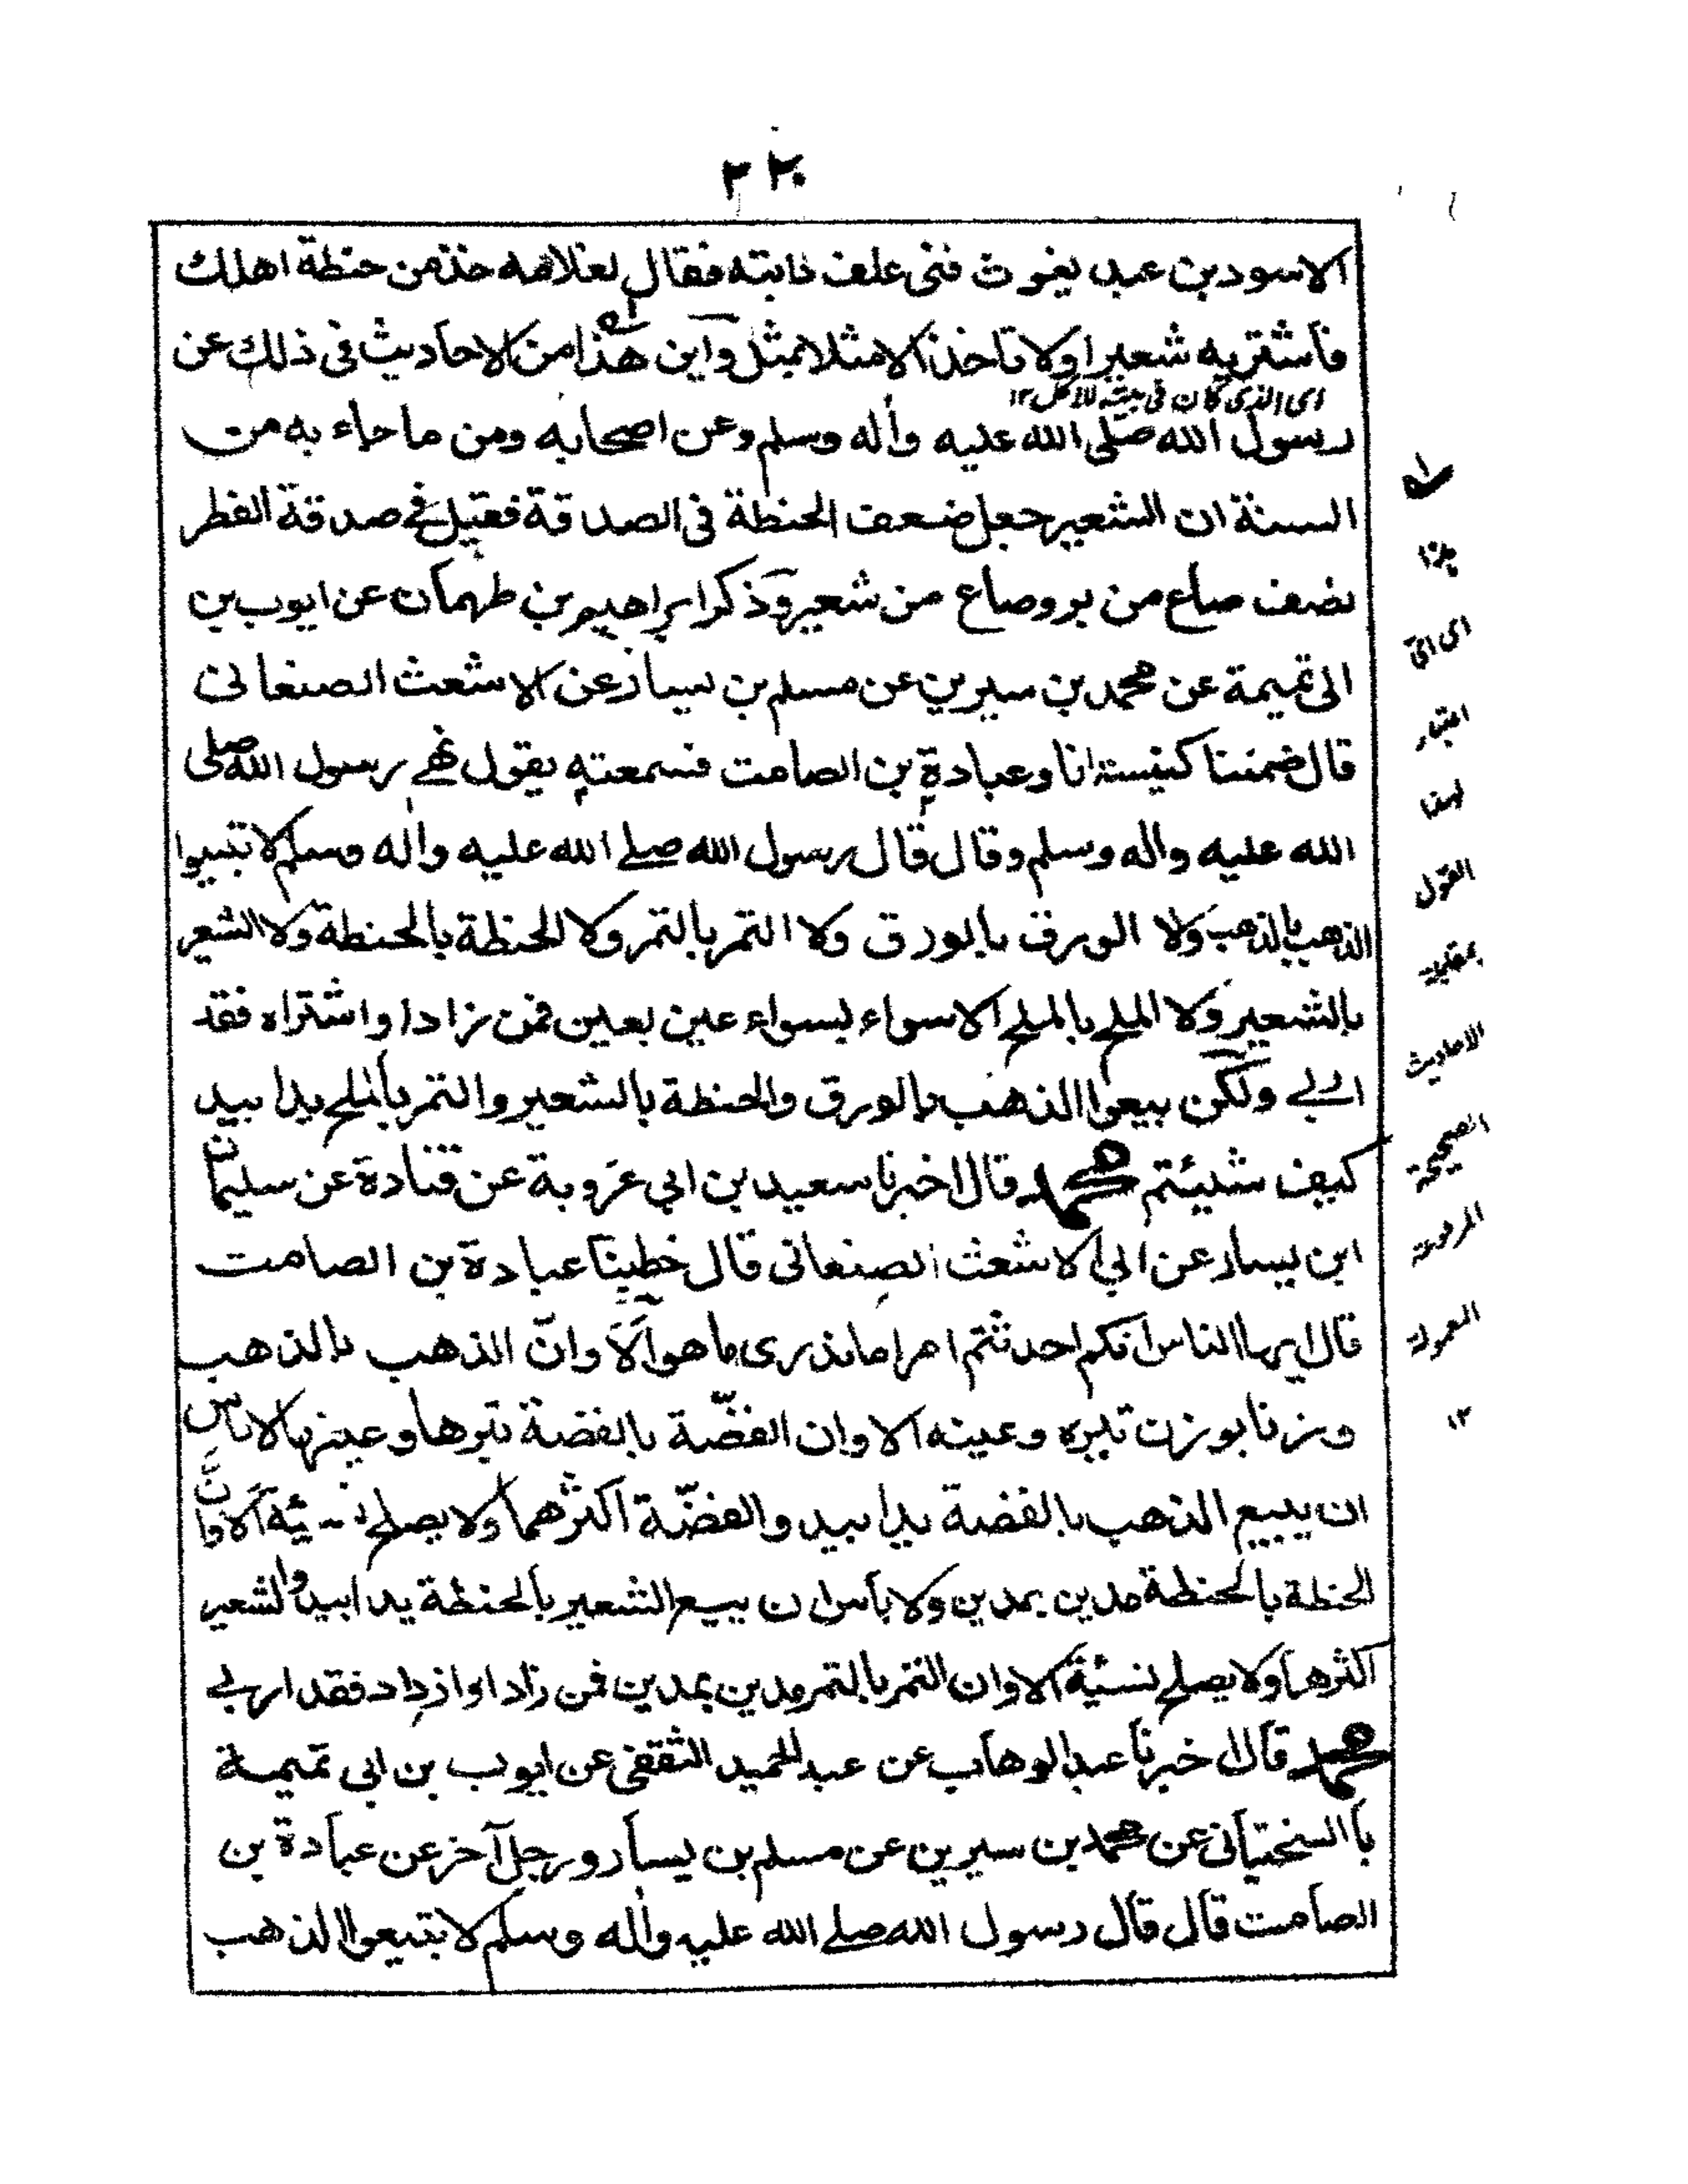 ٢٢٠
الاسود بن عبد يغوث فنى علف دابته فقال لغلامه خذ من حنطة اهلك
فاشتر به شعيرا ولا تاخذ الا مثلا بمثل واين هذا من الاحاديث فى ذلك عن
اى الذى كان فى بيته للاكل ١٢
رسول الله صلى الله عليه واٰله وسلم وعن اصحابه ومن ما جاء به من
السنة ان الشعير جعل ضعف الحنطة فى الصدقة فقيل فے صدقة الفطر
نصف صاع من بر وصاع من شعير وذكر ابراهيم بن طهمان عن ايوب بن
ابى تميمة عن محمد بن سيرين عن مسلم بن يسار عن الاشعث الصنعانى
قال ضمنتنا كنيسة انا وعبادة بن الصامت فسمعته يقول نهے رسول الله صلى
الله عليه واله وسلم وقال قال رسول الله صلے الله عليه واٰله وسلم لا تبيعوا
الذهب بالذهب ولا الورق بالورق ولا التمر بالتمر ولا الحنطة بالحنطة ولا الشعير
بالشعير ولا الملح بالملح الا سواء بسواء عين بعين فمن زاد او اشتراه فقد
اربے ولكن بيعوا الذهب بالورق والحنطة بالشعير والتمر بالملح يدا بيد
كيف شئيتم محمد قال اخبرنا سعيد بن ابي عروبة عن قتادة عن سليمان
ابن يسار عن ابي الاشعث الصنعانى قال خطبنا عبادة بن الصامت
قال ايها الناس انكم احدثتم امرا ما ندرى ما هو اَلَا وانّ الذهب بالذهب
وزنا بوزن تبره وعينه الا وان الفضّة بالفضة تبرها وعينها لا باس
ان يبيع الذهب بالفضة يدا بيد والفضّة اكثرهما ولا يصلح نسيئة اَلا وانَّ
الحنطة بالحنطة مدين بمدين ولا باس ان يبيع الشعير بالحنطة يدا بيد والشعير
اكثرهما ولا يصلح نسئية الا وان التمر بالتمر مدين بمدين فمن زاد او ازداد فقد اربے
محمد قال اخبرنا عبد الوهاب عن عبد الحميد الثقفى عن ايوب بن ابى تميمة
با السختيانى عن محمد بن سيرين عن مسلم بن يسار ورجل آخر عن عبادة بن
الصامت قال قال رسول الله صلے الله عليه واٰله وسلم لا تبيعوا الذهب
هٰذا
اى اتى
اعتبار
لهذا
القول
بمقابلة
الاحاديث
الصحيحة
المروية
المعمولة
١٢